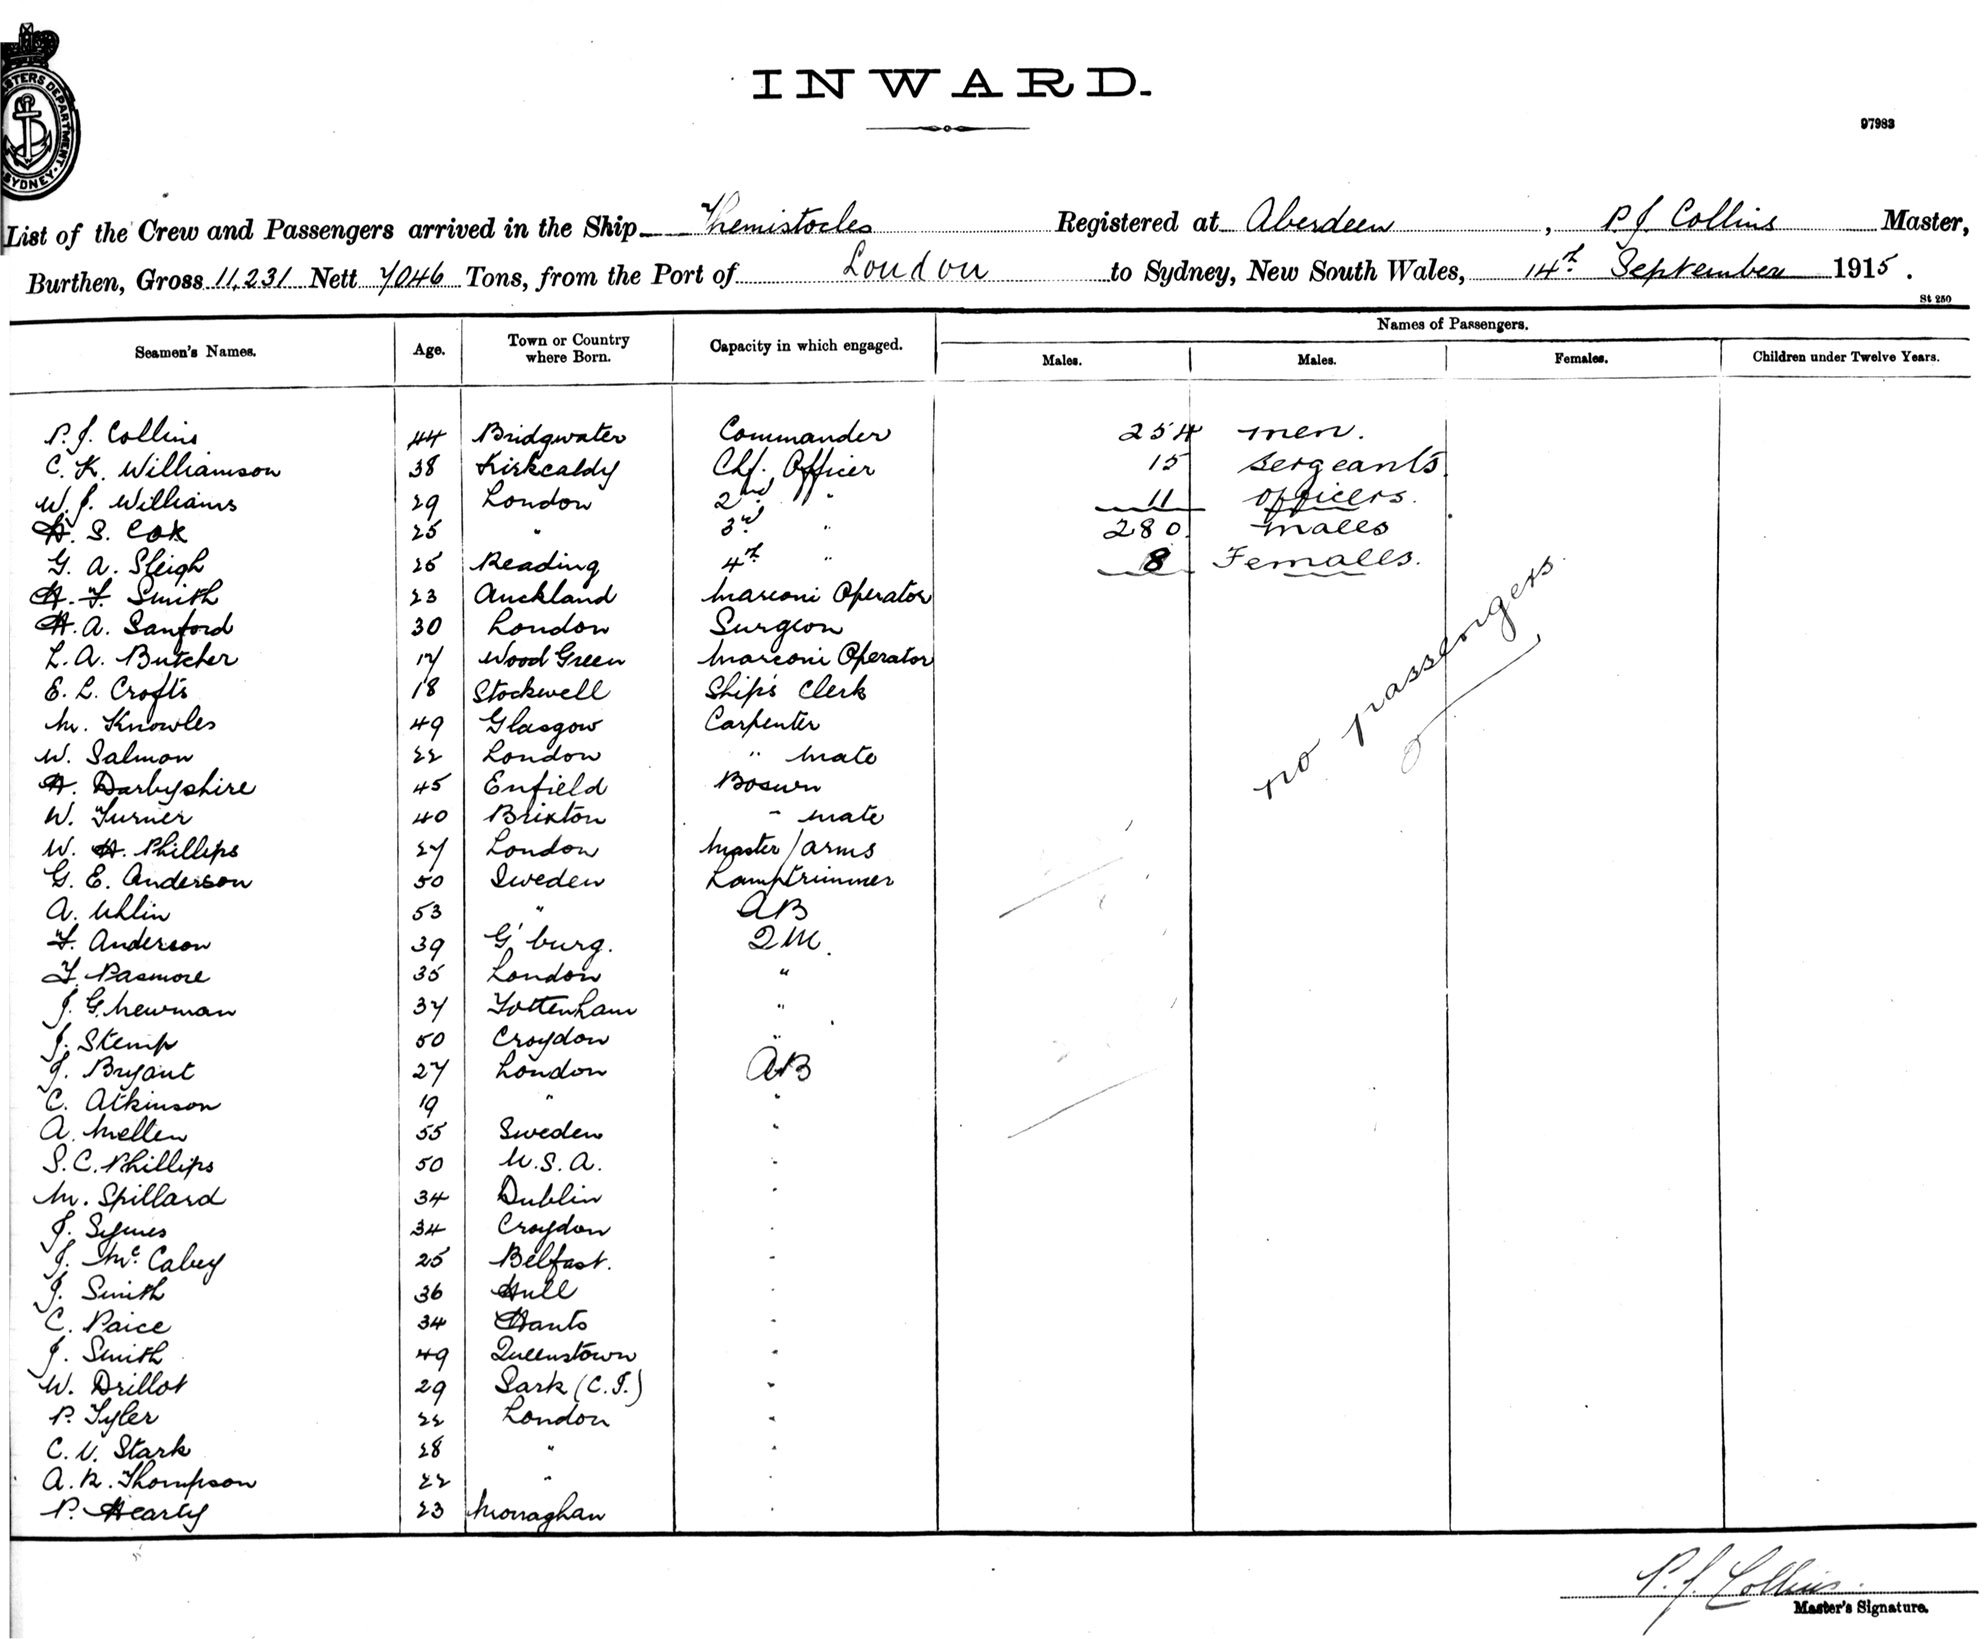 INWARD.
97983
STERS DEPARTMENT. SYDNEY.
List of the Crew and Passengers arrived in the Ship Themistocles Registered at Aberdeen, P J Collins Master,
Burthen, Gross 11,231 Nett 7046 Tons, from the Port of London to Sydney, New South Wales, 14th September 1915.
St 250
Names of Passengers.
Seamen's Names. Age. Town or Country where Born. Capacity in which engaged. Males. Males. Females. Children under Twelve Years.
P. J. Collins 44 Bridgwater Commander 254 men.
C. K. Williamson 38 Kirkcaldy Chf. Officer 15 Sergeants
W. J. Williams 29 London 2nd " 11 officers.
H. S. Cox 25 " 3rd " 280 males
G. A. Sleigh 25 Reading 4th " 8 Females.
H. F. Smith 23 Auckland Marconi Operator
H. A. Sanford 30 London Surgeon
L. A. Butcher 17 Wood Green Marconi Operator
E. L. Crofts 18 Stockwell Ship's Clerk
M. Knowles 49 Glasgow Carpenter
W. Salmon 22 London " mate
no passengers
H. Darbyshire 45 Enfield Bosun
W. Turner 40 Brixton " mate
W. H. Phillips 27 London Master/arms
G. E. Anderson 50 Sweden Lamptrimmer
A. Uhlin 53 " AB
F. Anderson 39 G'burg. QM.
F. Pasmore 35 London "
J. G. Newman 37 Tottenham "
J. Stemp 50 Croydon "
J. Bryant 27 London AB
C. Atkinson 19 " "
A. Mellen 55 Sweden "
S. C. Phillips 50 U.S.A. "
M. Spillard 34 Dublin "
J. Symes 34 Croydon "
J. McCabey 25 Belfast. "
J. Smith 36 Hull "
C. Paice 34 Hants "
J. Smith 49 Queenstown "
W. Drillot 29 Sark (C.I.) "
P. Tyler 22 London "
C. V. Stark 28 " "
A. R. Thompson 22 " "
P. Hearty 23 Monaghan "
P. J. Collins.
Master's Signature.